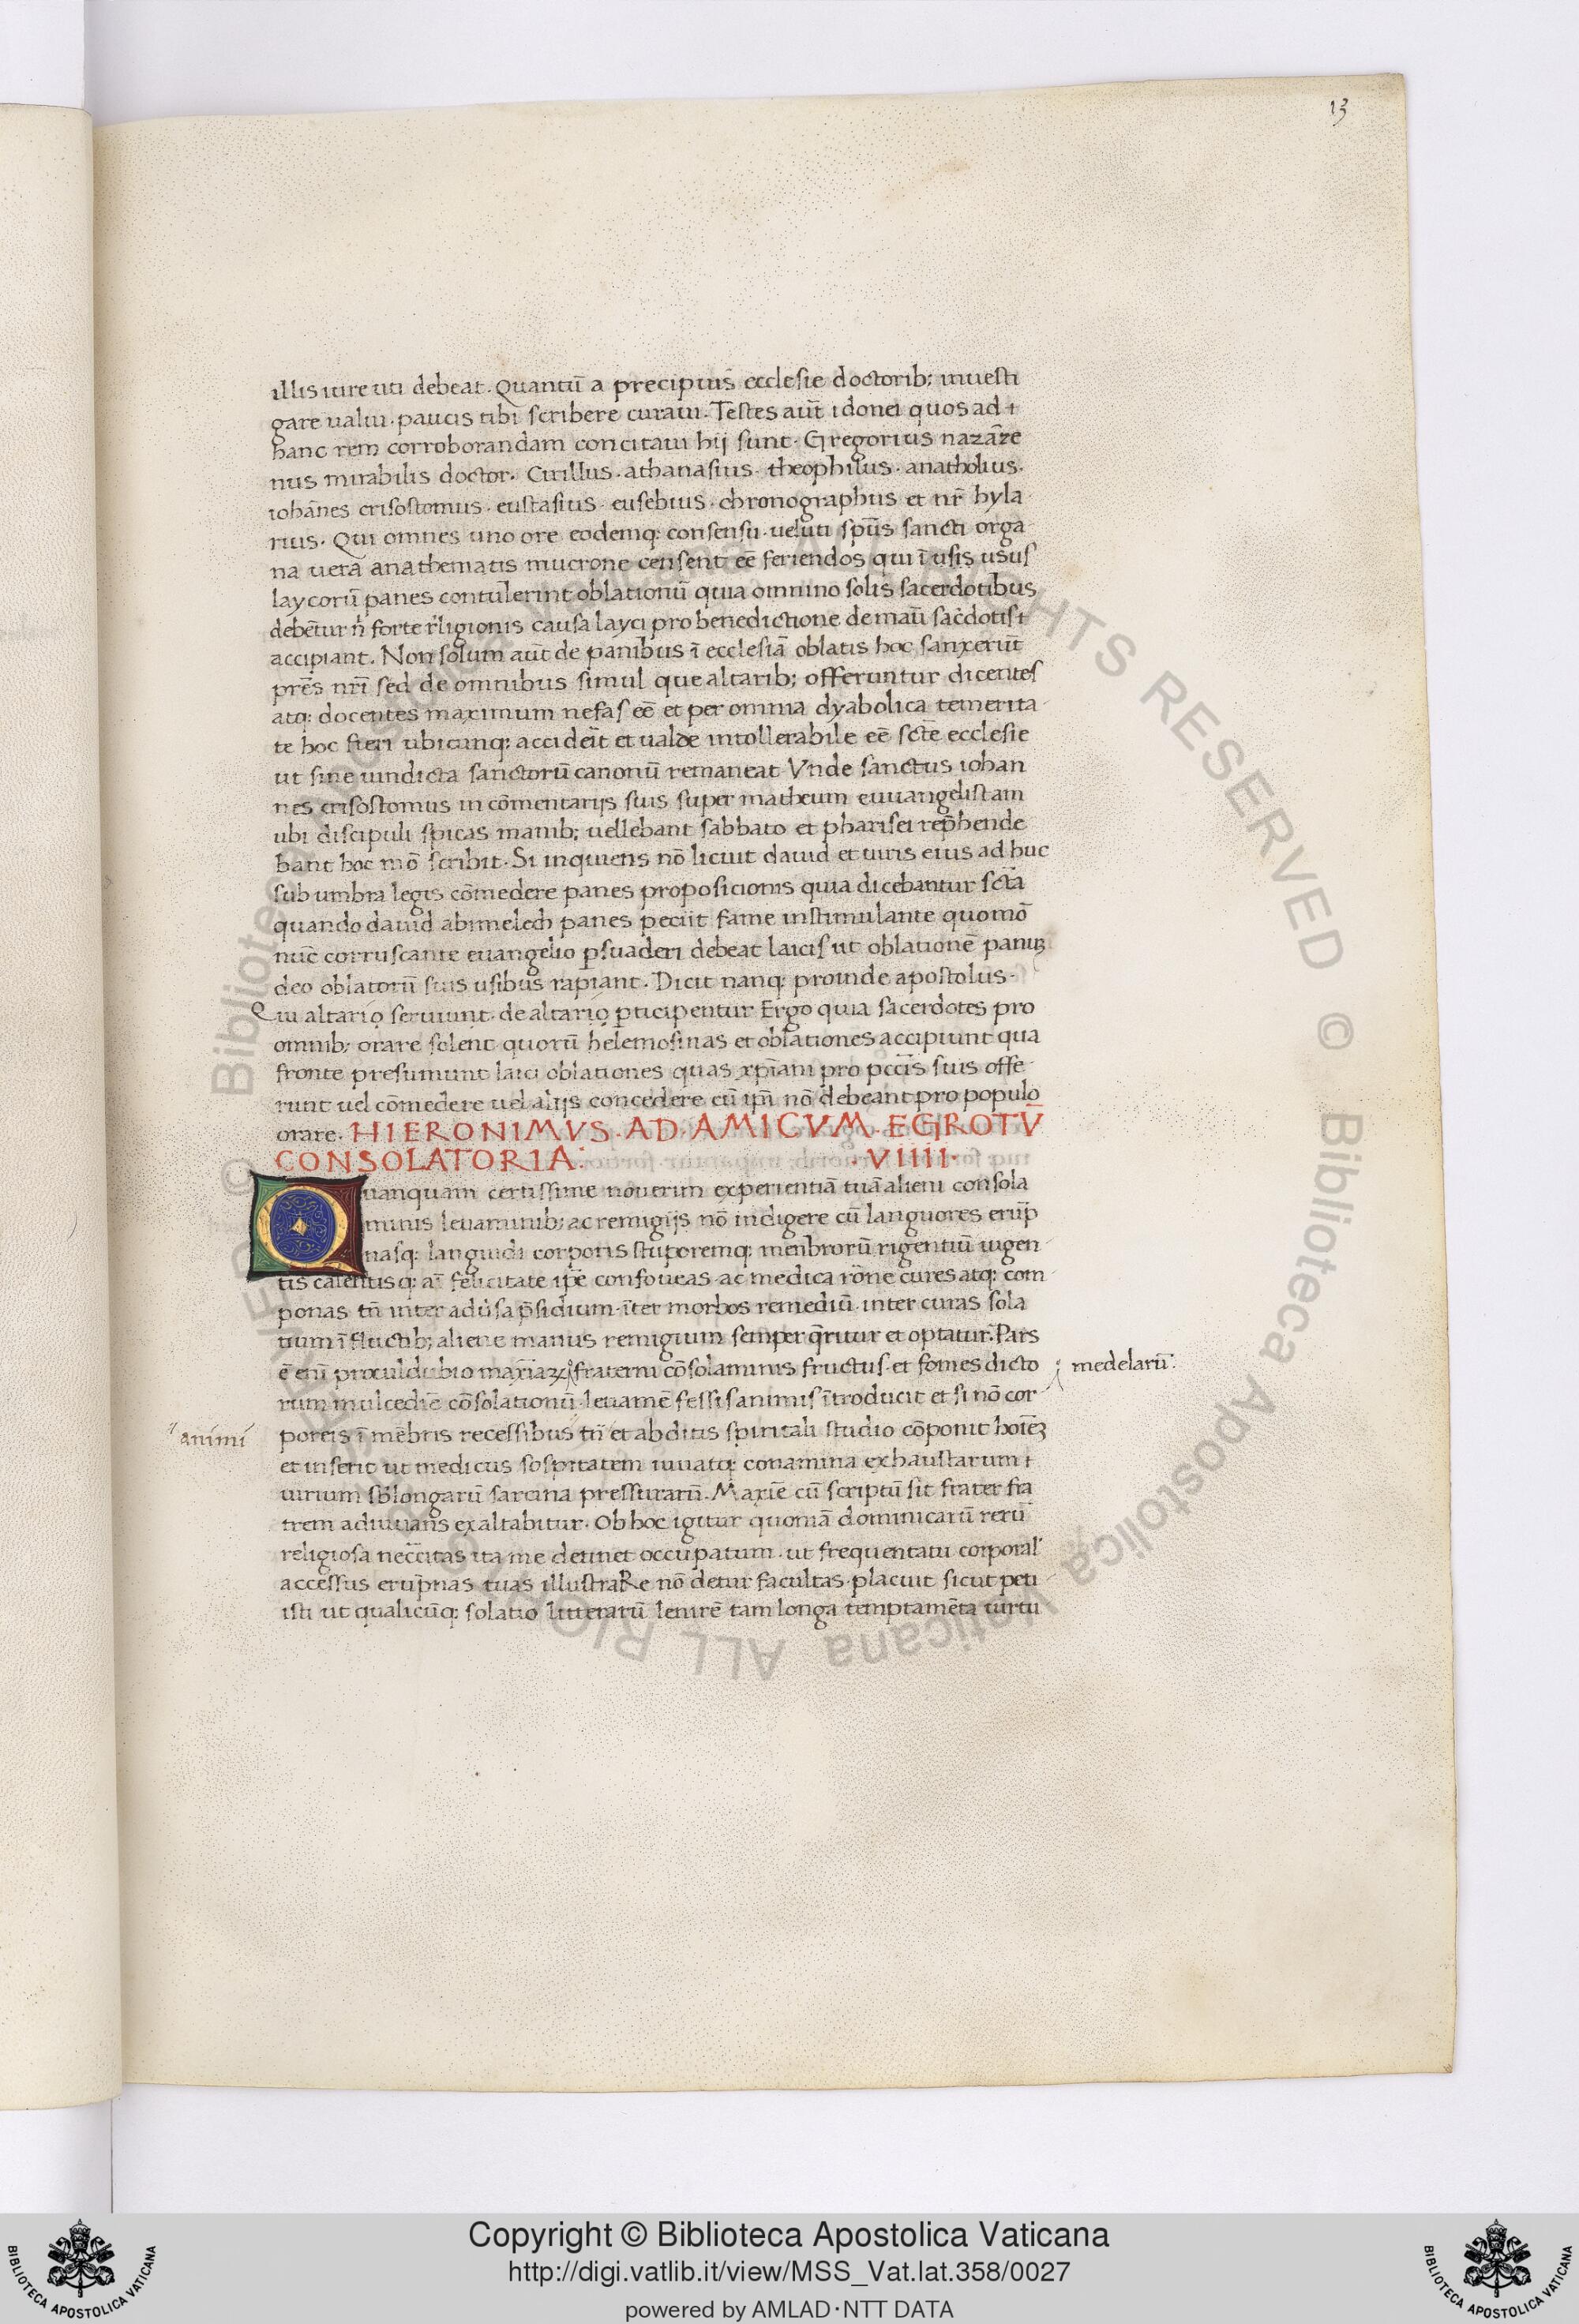 13
illis iure uti debeat. Quantū a precipuis ecclesie doctorib; inuesti
gare ualui. paucis tibi scribere curaui. Testes aūt idonei quos ad
hanc rem corroborandam concitaui hij sunt. Gregorius nazāze
nus mirabilis doctor. Cirillus. athanasius. theophilus. anatholius.
iohānes crisostomus. eustasius. eusebius. chronographus et nr̄ hyla
rius. Qui omnes uno ore eodemq; consensu. ueluti sp̄us sancti orga
na uera anathematis mucrone censent eē feriendos qui ī usis usus
laycorū panes contulerint oblationū quia omnino solis sacerdotibus
debētur n̄ forte religionis causa layci pro benedictione de manū sac̄dotis
accipiant. Non solum aūt de panibus ī ecclesiā oblatis hoc sanxerūt
pr̄es nr̄i sed de omnibus simul que altarib; offeruntur dicentes
atq; docentes maximum nefas eē et per omnia dyabolica temerita
te hoc fieri ubicunq; accideīt et ualde intollerabile eē sc̄te ecclesie
ut sine uindicta sanctorū canonū remaneat Vnde sanctus iohan
nes crisostomus in cōmentarijs suis super matheum euuangelistam
ubi discipuli spicas manib; uellebant sabbato et pharisei rep̄hende
bant hoc mō scribit. Si inquiens nō licuit dauid et uiris eius ad huc
sub umbra legis cōmedere panes proposicionis quia dicebantur sc̄ta
quando dauid abimelech panes peciit fame instimulante quomō
nūc corruscante euangelio p̱suaderi debeat laicis ut oblationē panuȝ
deo oblatorū suis usibus rapiant. Dicit nanq; proinde apostolus.
Qui altario seruiunt. de altario p̱ticipentur Ergo quia sacerdotes pro
omnib; orare solent quorū helemosinas et oblationes accipiunt qua
fronte presumunt laici oblationes quas xp̄iani pro pcc̄is suis offe
runt uel cōmedere uel alijs concedere cū ip̄i nō debeant pro populo
orare. HIERONIMVS. AD. AMICVM. EGROTV̄
CONSOLATORIA. .VIIII.
Quanquam certissime nouerim experientiā tuā alieni consola
minis leuaminib; ac remigijs nō indigere cū languores erūp
nasq; languidi corporis stuporemq; menbrorū rigentiū uigen
tis calentisq; aī felicitate ip̄e confoueas ac medica rōne cures atq; com
ponas tn̄ inter adūsa p̄sidium. īter morbos remediū inter curas sola
tium ī fluctib; aliene manus remigium semper q̄ritur et optatur. Pars
ē enī proculdubio maxīaȝ fraterni cōsolaminis fructus. et fomes dicto
medelarū
rum mulcediē cōsolationū leuamē fessis animis ītroducit et si nō cor
poreis ī mēbris recessibus tn̄ et abditis spiritali studio cōponit hoīeȝ
animi
et inserit ut medicus sospitatem iuuatq; conamina exhaustarum
uirium sb̄ longarū sarcina pressurarū. Maxīe cū scriptū sit frater fra
trem adiuuans exaltabitur. Ob hoc igitur quoniā dominicarū rerū
religiosa necc̄itas ita me detinet occupatum. ut frequentatu corporal'
accessus erūpnas tuas illustraRe nō detur facultas. placuit sicut peti
isti ut qualicūq; solatio litterarū lenirē tam longa temptamēta uirtu
Copyright © Biblioteca Apostolica Vaticana
http://digi.vatlib.it/view/MSS_Vat.lat.358/0027
powered by AMLAD·NTT DATA